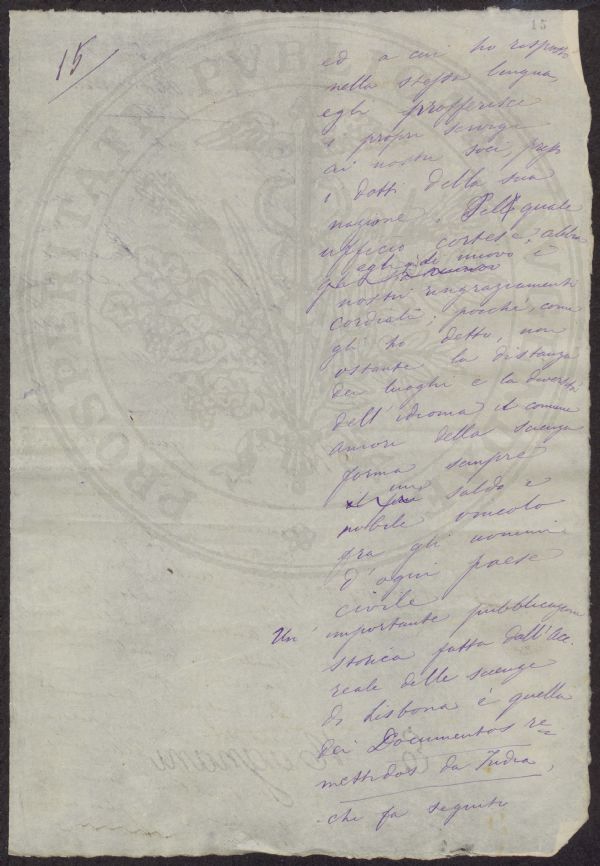 15
15
ed a cui ho risposto
nella stessa lingua,
egli profferisce
i propri servigi
ai nostri soci, presso
i dotti della sua
nazione. Del quale
ufficio cortese, abbia
egli di nuovo i
nostri ringraziamenti
cordiali; poichè, come
gli ho detto, non
ostante la distanza
dei luoghi e la diversità
dell'idioma, il comune
amore della scienza
forma sempre
un saldo e
nobile vincolo
fra gli uomini
d'ogni paese
civile
Un' importante pubblicazione
storica fatta dall'Acc.
reale delle scienze
di Lisbona è quella
dei Documentos re-
mettidos da India,
che fa seguito
PROSPERITATI PVBL